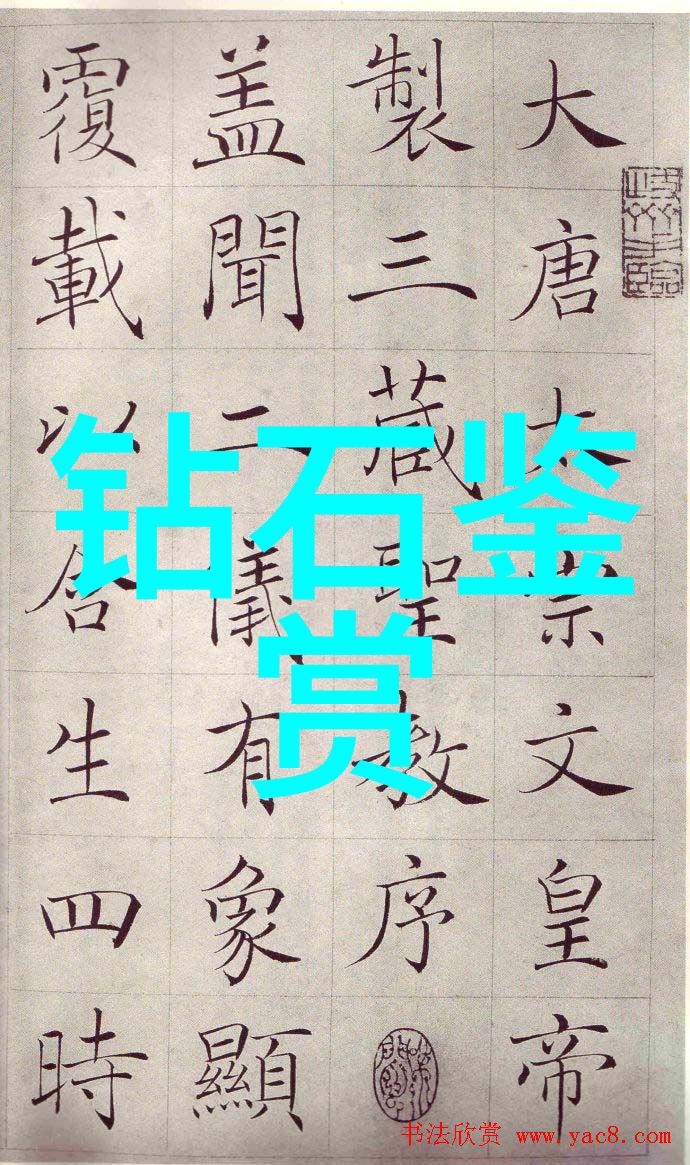 大唐太宗文皇帝
製三藏聖教序
盖聞二儀有象顯
覆載以含生四時
钻石鉴
赏
书法欣赏 www.yac8.com